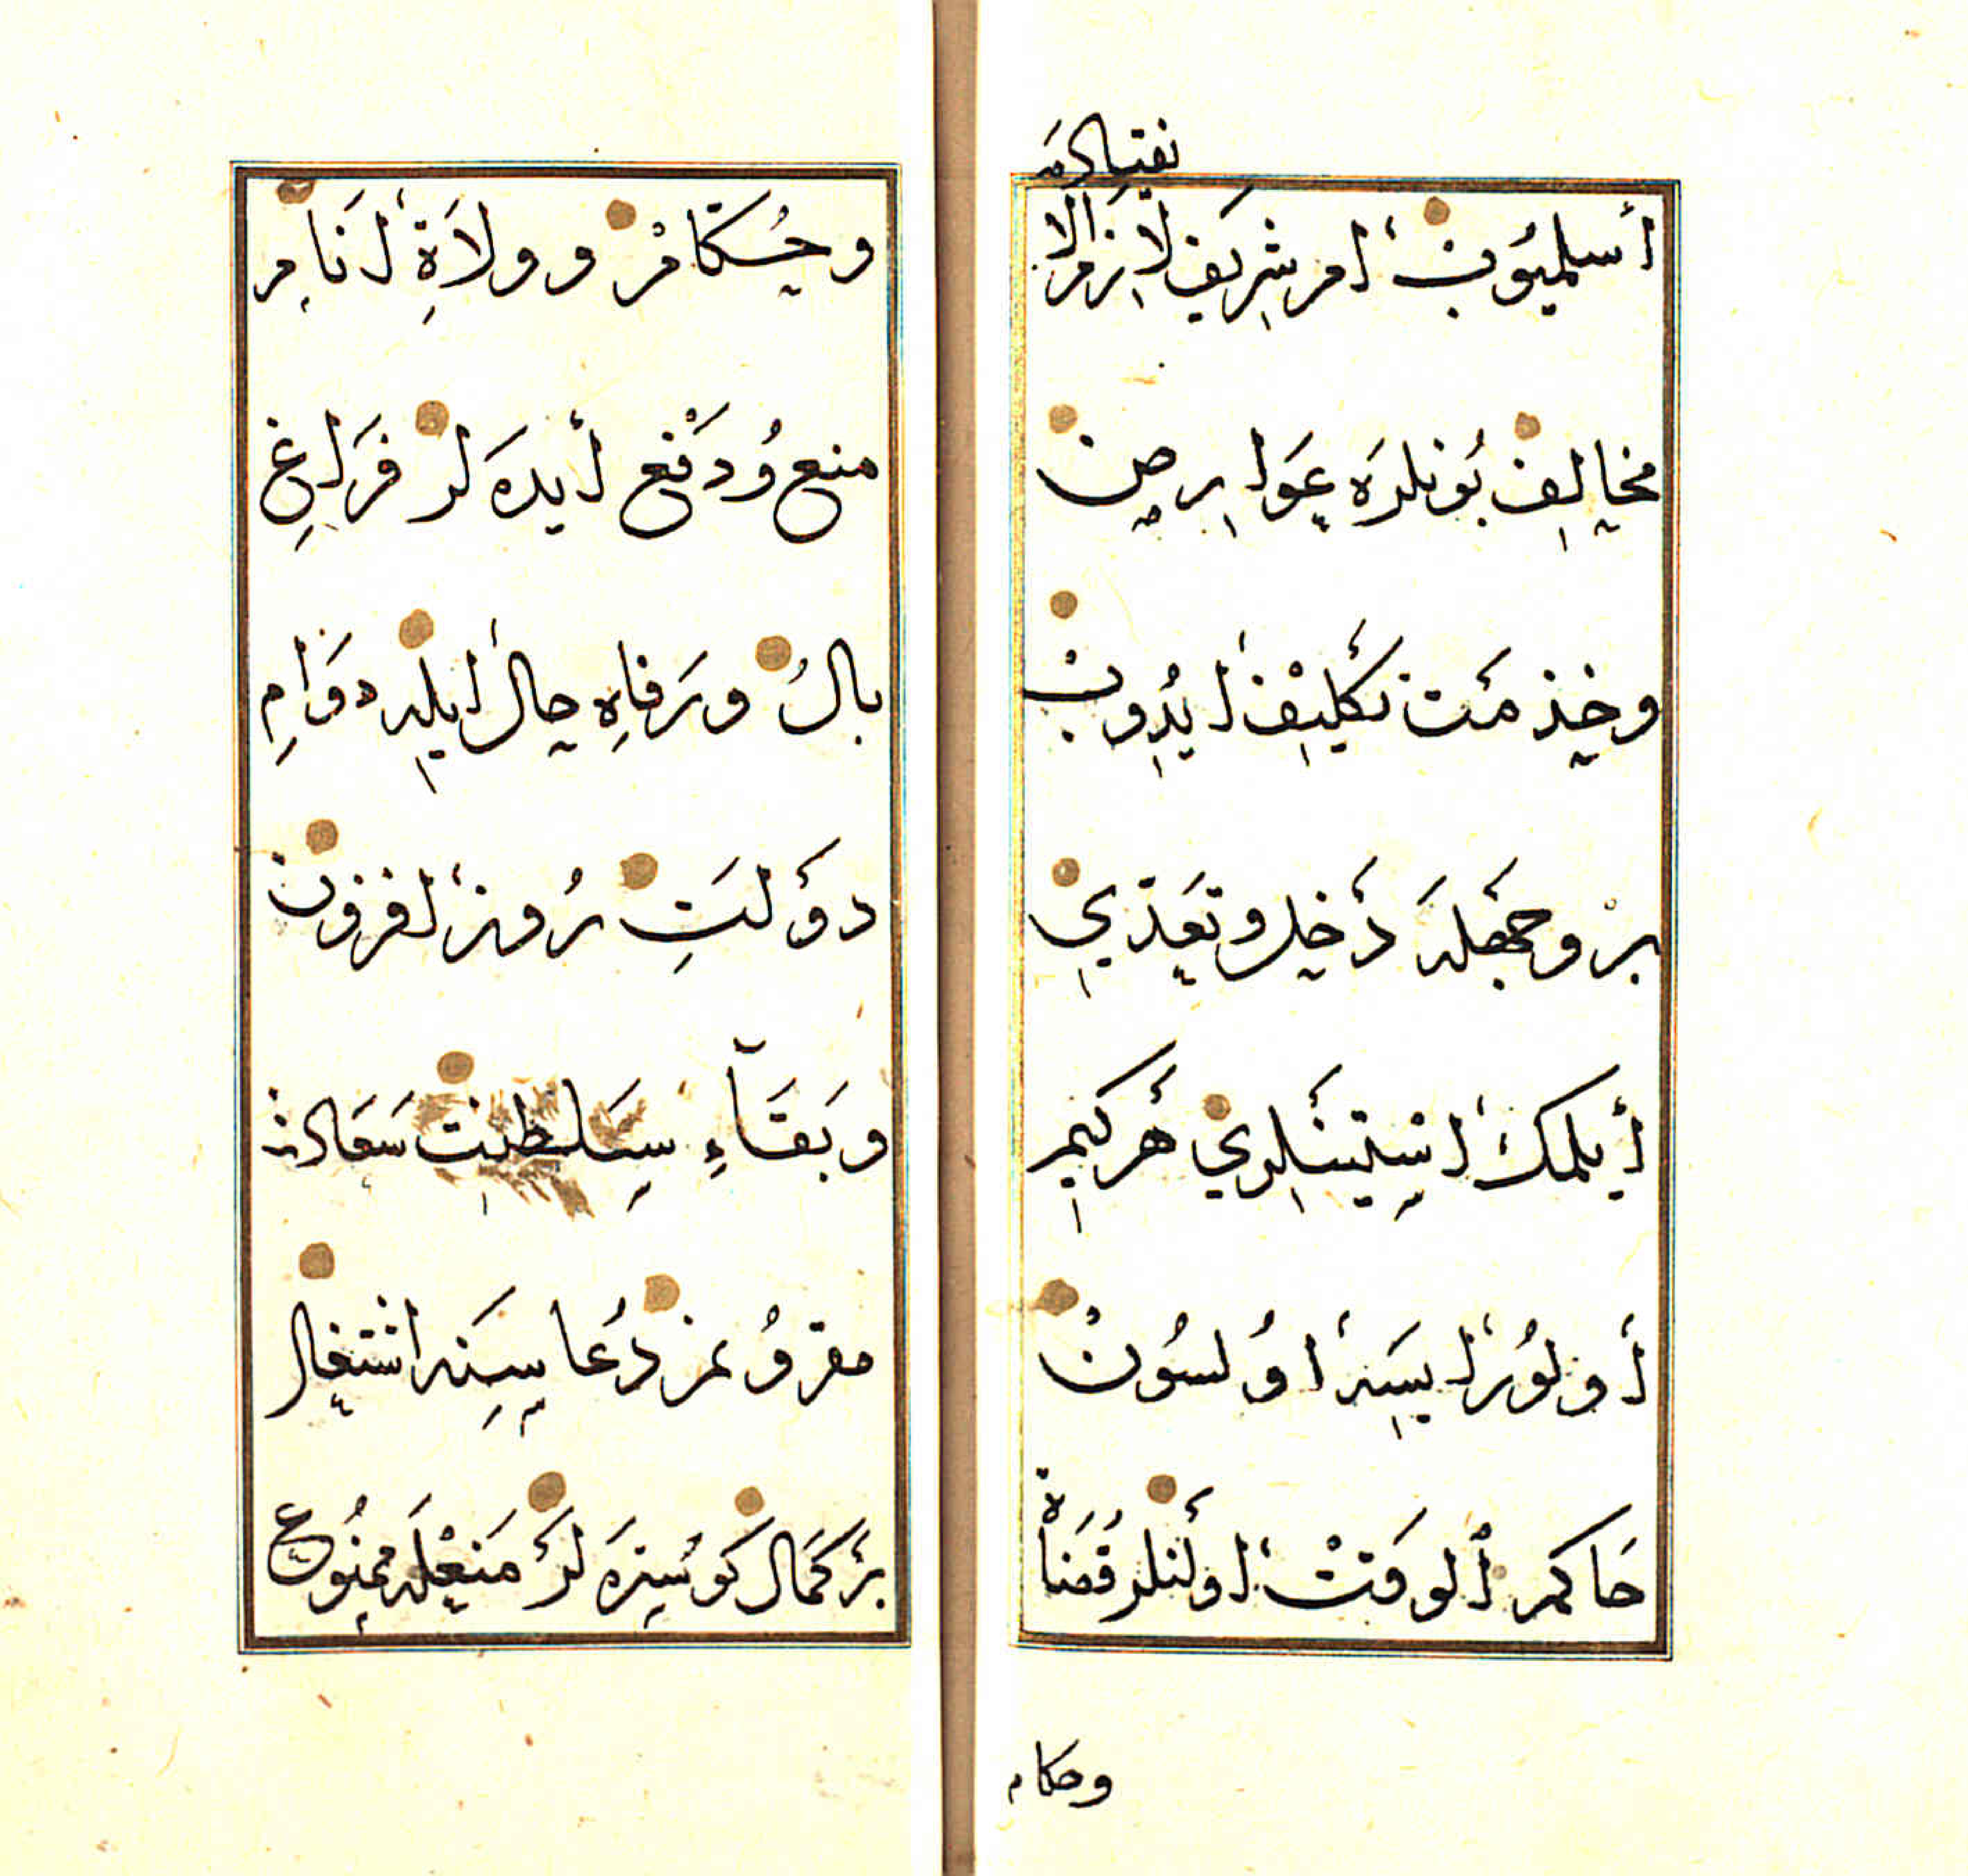 أسلميوب أمر شريف لازم الا
نقيادمه
مخالف بونلره عوارض
وخذمت تكليف أيدوب
بر وجهله دخل وتعدي
أيلمك استينلري هر كيم
أولور ايسه اولسون
حاكم ألوقت اولنلر قضاة
وحكام
وحكام وولاة أنام
منع ودفع أيده لر فراغ
بال ورفاه حال ايله دوام
دولت روز أفزون
وبقاء سلطنت سعادت
مقرونمز دعا سنه اشتغال
بر كمال كوستره لر منعله ممنوع